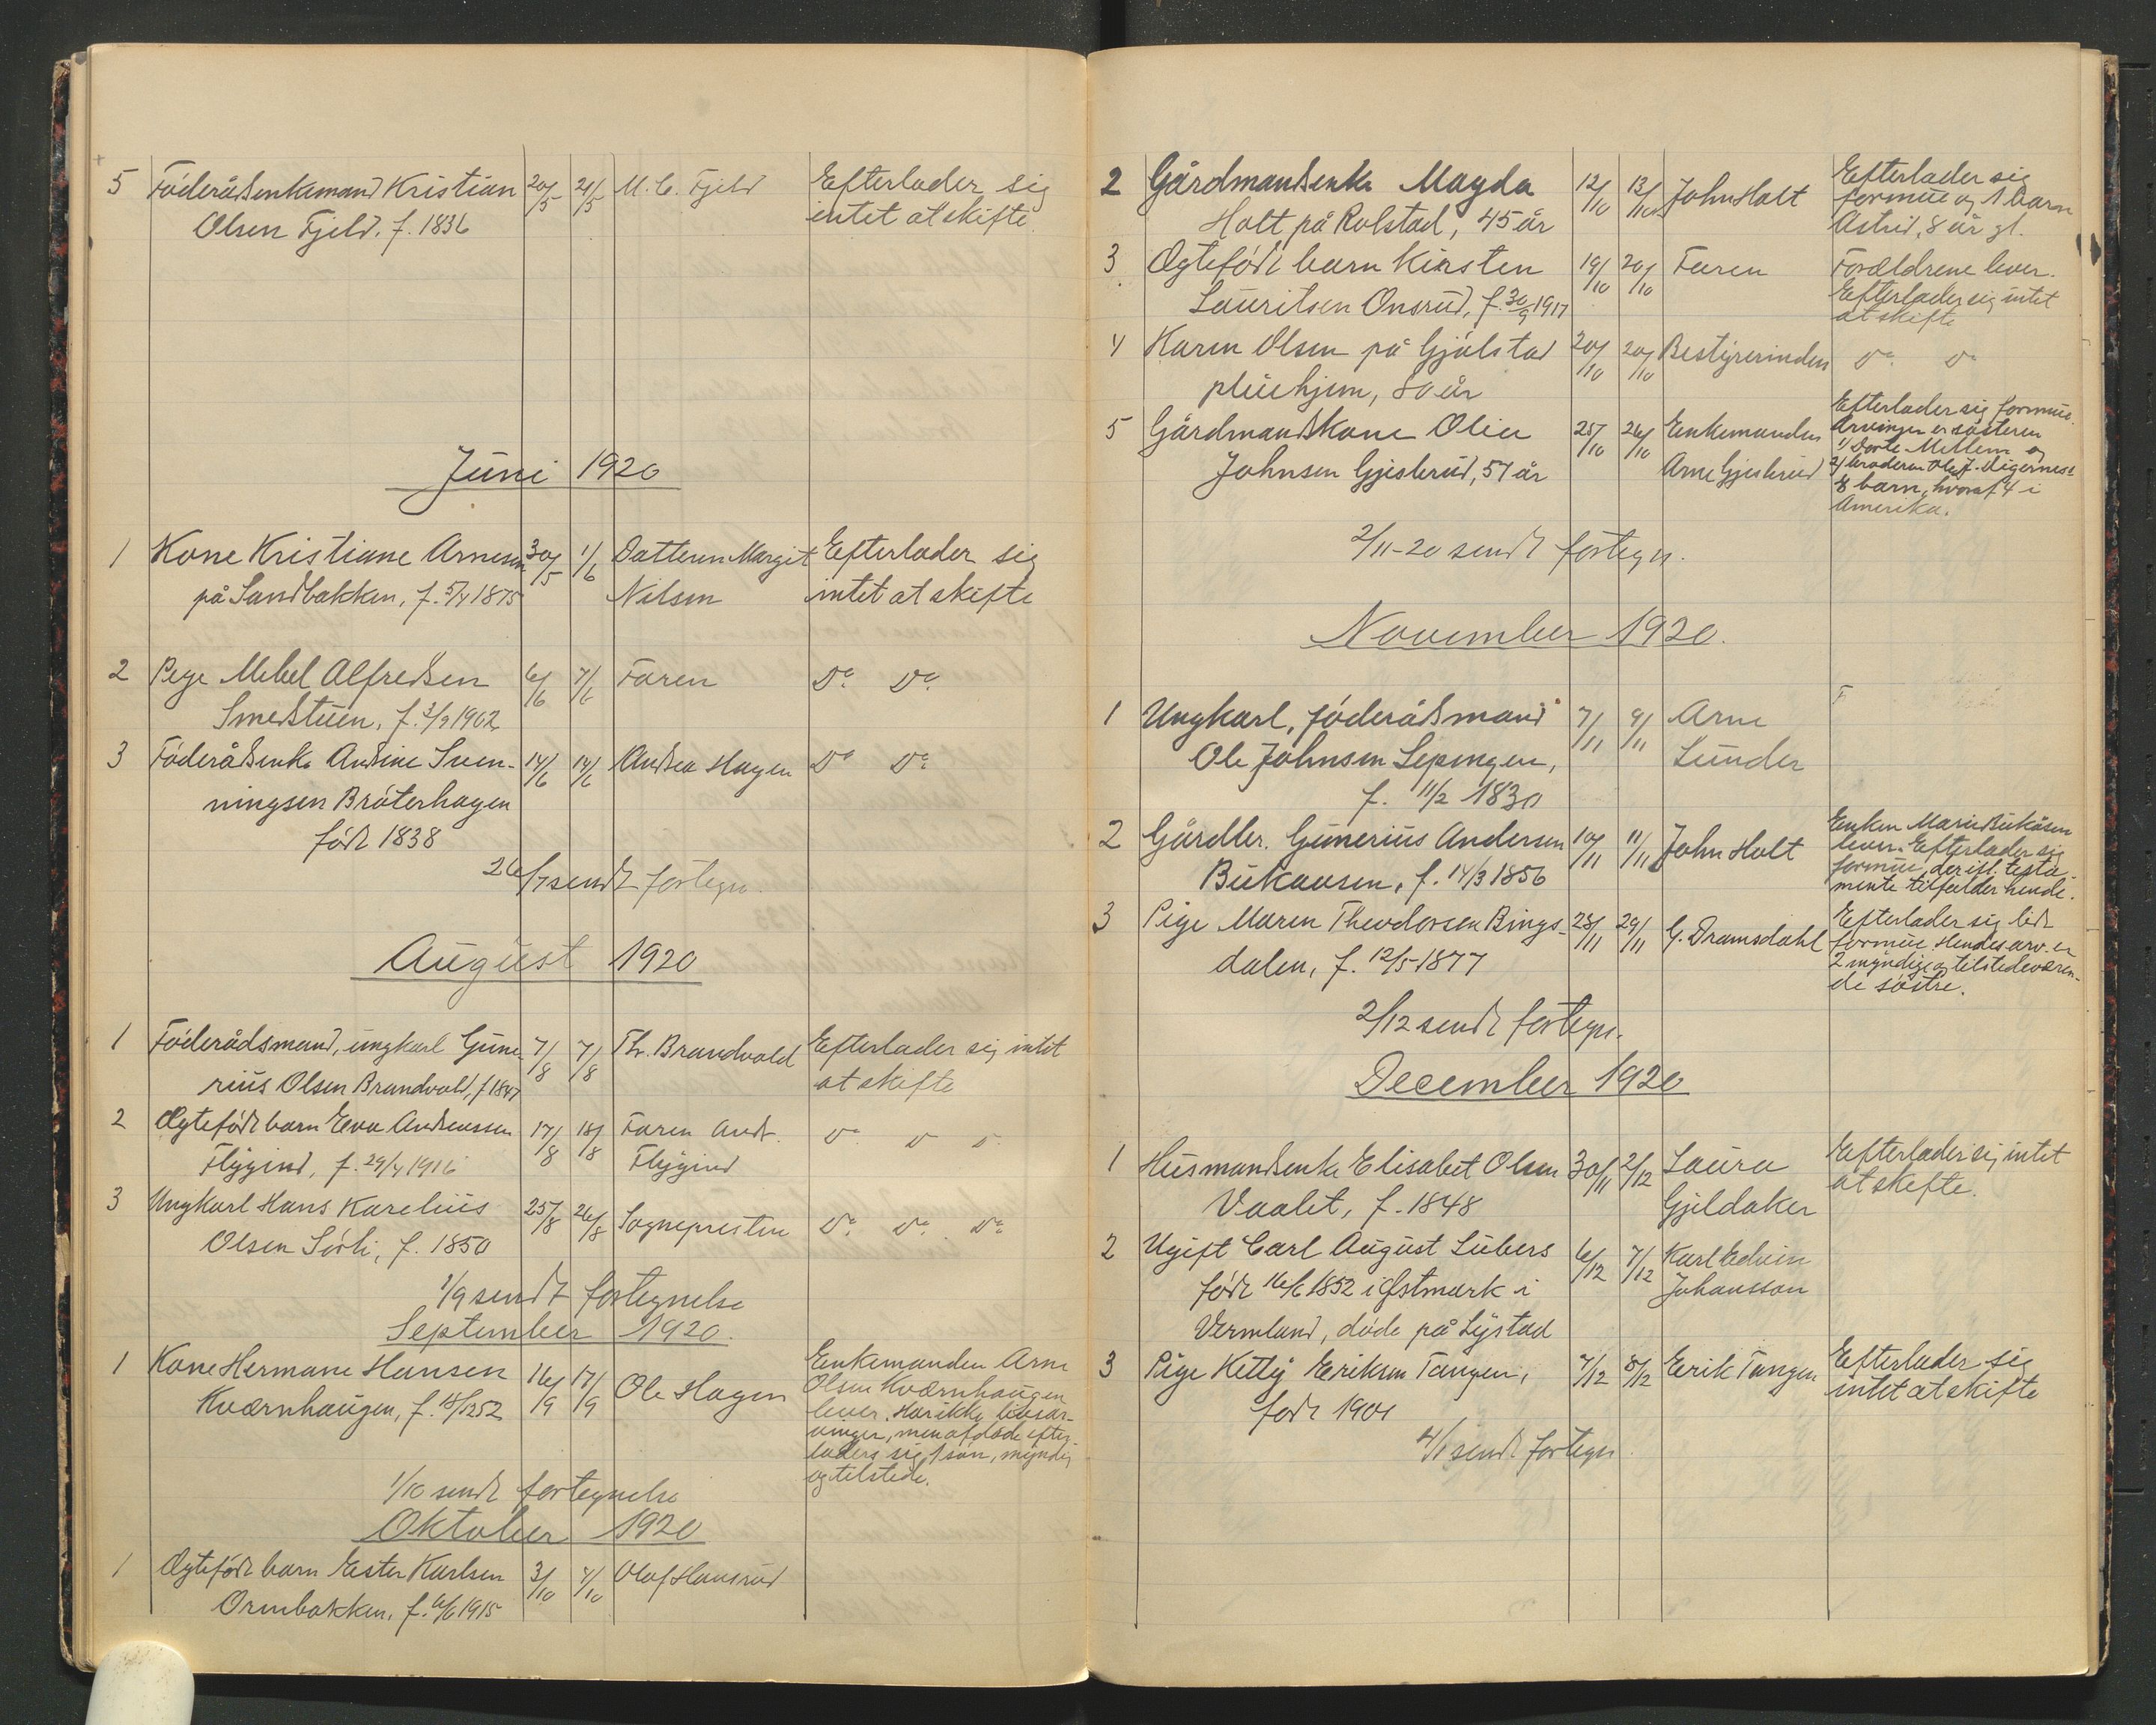 5 Föderådsenkemand Kristian 20/5 21/5 M. C. Fjeld Efterlader sig
Olsen Fjeld. f. 1836 intet at skifte.
Juni 1920
1 Kone Kristiane Arnesen 30/5 1/6 Datteren Margit Efterlader sig
på Sandbakken, f. 5/4 1875 Nilsen intet at skifte
2 Pige Mebel Alfredsen 6/6 7/6 Faren Do. Do.
Smedstuen, f. 3/9 1902
3 Föderådsenke Andine Sven- 14/6 14/6 Andrea Hagen Do Do.
ningsen Bråterhagen
född 1838
26/7 sendt fortegn.
August 1920
1 Föderådsmand, ungkarl Gune- 7/8 7/8 Th. Brandvold Efterlader sig intet
rius Olsen Brandvold, f 1847 at skifte
2 Ægtefödt barn Eva Andreassen 17/8 18/8 Faren Andr. Do Do Do
Flygind, f. 29/4 1916 Flygind
3 Ungkarl Hans Karelius 25/8 26/8 Sognepresten Do. Do. Do.
Olsen Sörli, f. 1850
1/9 sendt fortegnelse
September 1920.
1 Kone Hermane Hansen 16/9 17/9 Ole Hagen Enkemanden Arne
Kværnhaugen, f. Olsen Kværnhaugen
lever. Har ikke livsar-
vinger, men afdøde efter-
laders sig 1 sön, myndig
og tilstede.
1/10 sendt fortegnelse
Oktober 1920
1 Ægtefödt barn Ester Karlsen 3/10 4/10 Olaf Hansrud
Ormbakken, f. 6/6 1915
2 Gårdmandsenke Magda 12/10 13/10 John Holt Efterlader sig
Holt på Rolstad, 45 år formue og 1 barn
Astrid, 8 år gl.
3 Ægtefödt barn Kirsten 19/10 20/10 Faren Forældrene lever.
Lauritsen Onsrud, f. 30/9 1917 Efterlader sig intet
at skifte
4 Karen Olsen på Gjölstad 20/10 20/10 Bestyrerinden Do. Do
pleiehjem, 80 år
5 Gårdmandskone Olea 25/10 26/10 Enkemanden Efterlader sig formue.
Johnsen Gjeslerud, 57 år Arne Gjeslerud Arvinger er söskeren
1/ Dorte Mellem og
2/ broderen Ole J.
8 barn, hvoraf 4 i
Amerika.
2/11-20 sendt fortegn.
November 1920.
1 Ungkarl, föderådsmand 7/11 9/11 Arne F
Ole Johnsen Sepengen, Lunder
f. 11/2 1830
2 Gårdbr. Gunerius Andersen 10/11 11/11 John Holt Enken Marie Bukåsen
Bukaasen, f. 14/3 1856 lever. Efterlader sig
formue, der ifl. testa-
mente tilfalder hende.
3 Pige Maren Theodorsen Bings- 28/11 29/11 G. Dramsdahl Efterlader sig lidt
dalen, f. 12/5 1877 formue. Hendes arv. er
2 myndige og tilstedeværen-
de söstre.
2/12 sendt fortegn.
December 1920
1 Husmandsenke Elisabet Olsen 30/11 2/12 Laura Efterlader sig intet
Vaalet, f. 1848 Gjeldaker at skifte.
2 Ugift Carl August Lubers 6/12 7/12 Karl Edvin
född 16/6 1852 i Østmark i Johansson
Vermland, döde på Lystad
3 Pige Kitty Eriksen Tangen, 7/12 8/12 Erik Tangen Efterlader sig
född 1901 intet at skifte
4/1 sendt fortegn